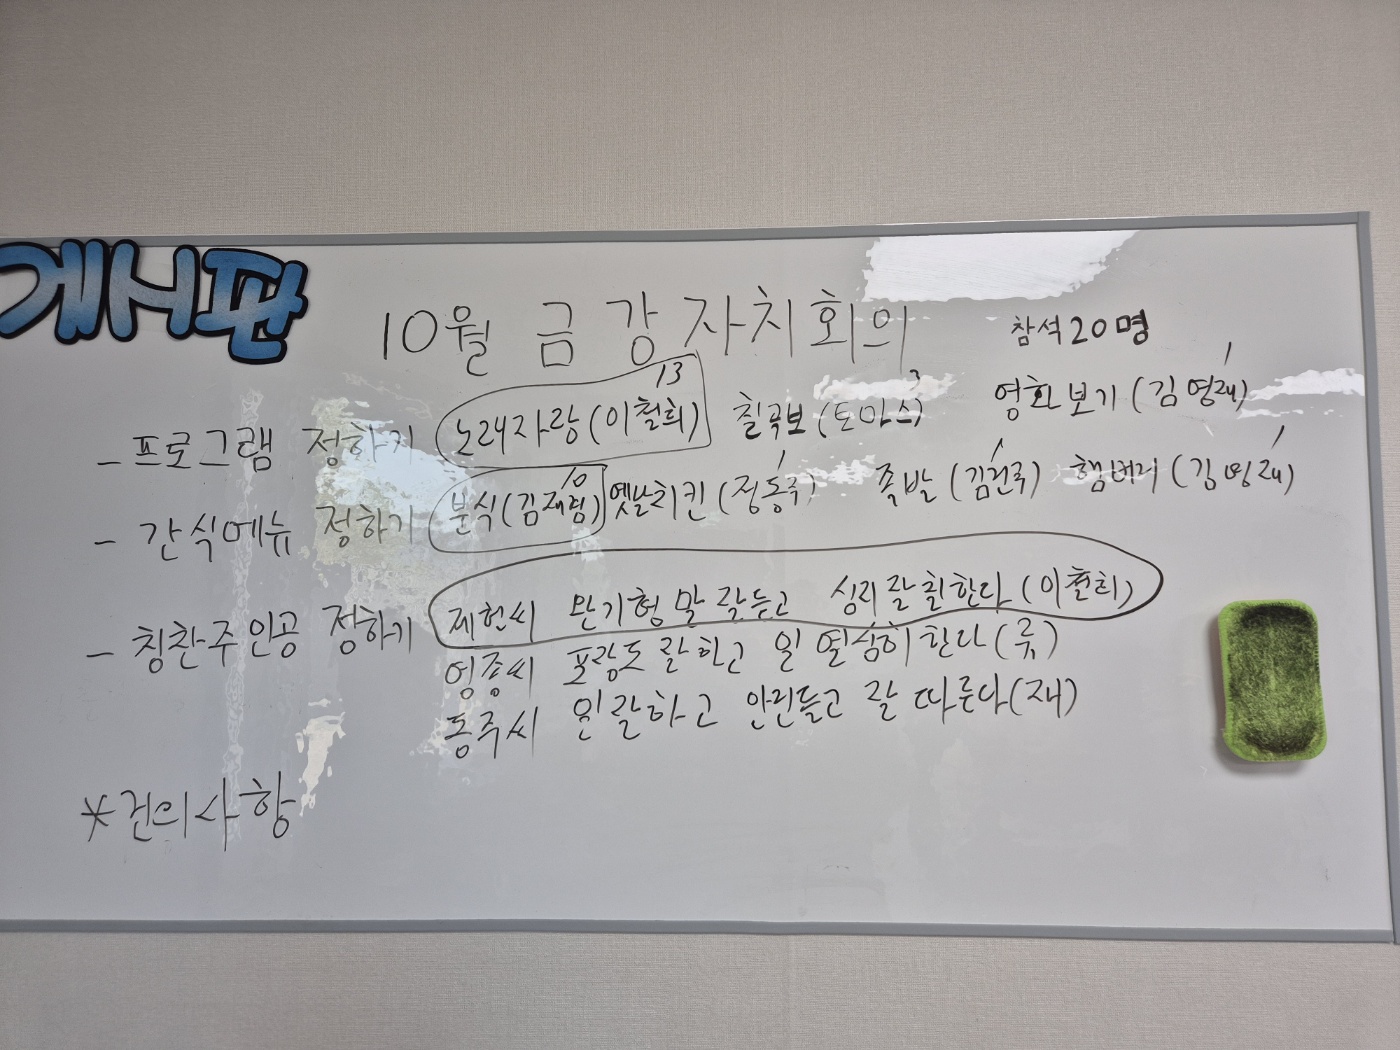 게시판
10월 금강자치회의 참석 20명
- 프로그램 정하기 노래자랑(이철희) 13 칠곡보(토마스) 3 영화보기(김영재) 1
- 간식메뉴 정하기 분식(김재형) 10 옛날치킨(정동주) 1 족발(김건주) 1 햄버거(김영재) 1
- 칭찬주인공 정하기 제헌씨 만기형 말 잘듣고 심리 잘 한다(이철희)
영종씨 포장도 잘하고 일 열심히 한다(류)
동주씨 일 잘하고 말 잘 따른다(재)
*건의사항